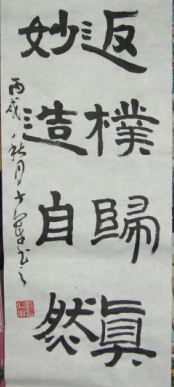 返樸歸真
妙造自然
丙戌秋月